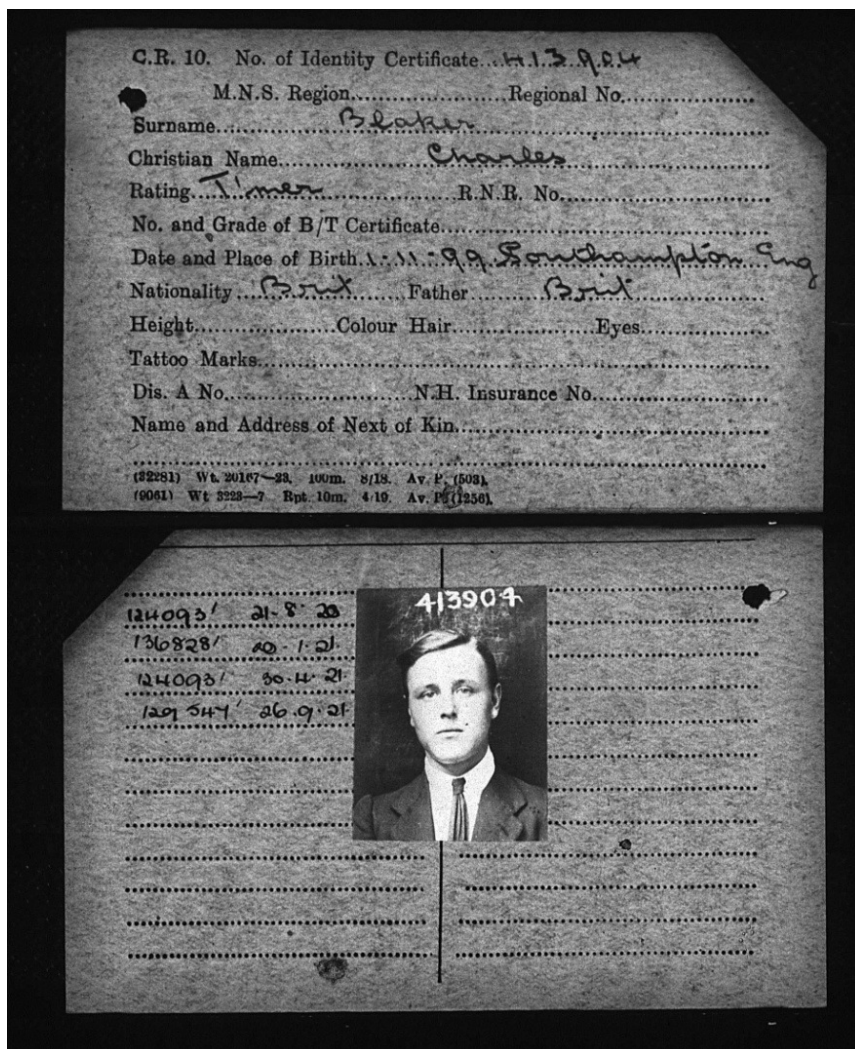 C.R. 10. No. of Identity Certificate 413904
M.N.S. Region Regional No.
Surname Blaker
Christian Name Charles
Rating T'mer R.N.R. No.
No. and Grade of B/T Certificate
Date and Place of Birth 1-11-99 Southampton Eng
Nationality Brit Father Brit
Height Colour Hair Eyes
Tattoo Marks
Dis. A No. N.H. Insurance No.
Name and Address of Next of Kin
(32281) Wt. 20167—23. 100m. 8/18. Av. P. (503).
(9061) Wt 3223—7 Rpt. 10m. 4/19. Av. P. (1256).
413904
124093' 21-8-20
136828' 20.1.21.
124093' 30.4.21.
129547' 26.9.21.